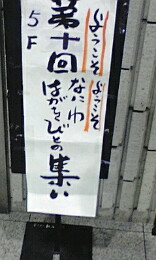 ようこそ ようこそ
第十回
なにわ
はがきびとの集い
5F